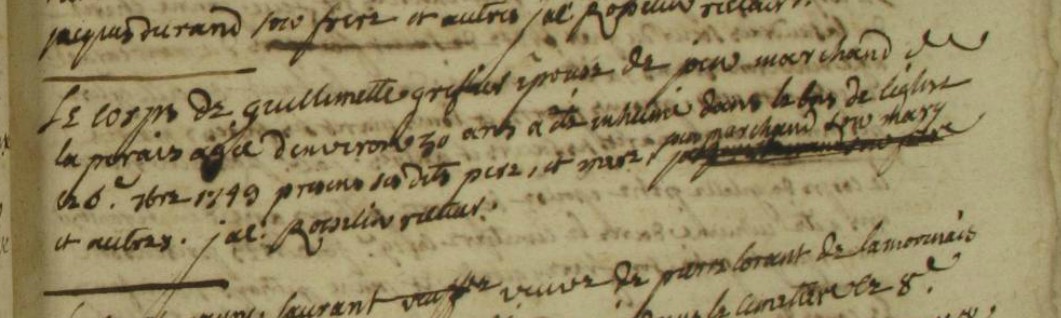 jacques durand son frere et autres jal Ropellin recteur.
Le corps de guillemette greslier epouse de jean marchand de
la perais agee denviron 30 ans a été inhumé dans le bas de léglise
le 6e. 7bre 1749 presens ses dits pere, et mere, jean marchand son mary
et autres. jal. Ropellin recteur.
laurant veuve de pierre lorant de lamorinais
le cimetiere le 8e.